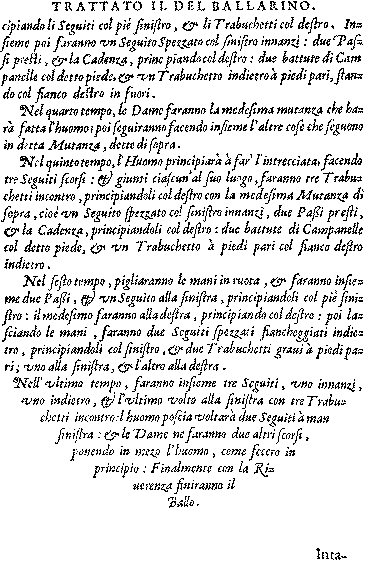 TRATTATO II. DEL BALLARINO.
cipiandoli Seguiti col piè ſiniſtro, & li Trabuchetti col deſtro. In=
ſieme poi faranno vn Seguito Spezzato col ſiniſtro innanzi: due Paſ=
ſi preſti, & la Cadenza, principiando col deſtro: due battute di Cam
panelle col detto piede, & vn Trabuchetto indietro à piedi pari, ſtan=
do col fianco deſtro in fuori.
Nel quarto tempo, le Dame faranno la medeſima mutanza che hau=
rà fatta l'huomo; poi ſeguiranno facendo inſieme l'altre coſe che ſeguono
in detta Mutanza, dette di ſopra.
Nel quinto tempo, l'Huomo principiarà à far' l'intrecciata; facendo
tre Seguiti ſcorſi: & giunti ciaſcun'al ſuo luogo, faranno tre Trabu=
chetti incontro, principiandoli col deſtro con la medeſima Mutanza di
ſopra, cioè vn Seguito ſpezzato col ſiniſtro innanzi, due Paſſi preſti,
& la Cadenza, principiandoli col deſtro: due battute di Campanelle
col detto piede, & vn Trabuchetto à piedi pari col fianco deſtro
indietro.
Nel ſeſto tempo, pigliaranno le mani in ruota, & faranno inſie=
me due Paſſi, & vn Seguito alla ſiniſtra, principiandoli col piè ſini=
ſtro: il medeſimo faranno alla deſtra, principiando col deſtro: poi la=
ſciando le mani, faranno due Seguiti ſpezzati fiancheggiati indie=
tro, principiandoli col ſiniſtro, & due Trabuchetti graui à piedi pa=
ri; vno alla ſiniſtra, & l'altro alla deſtra.
Nell'vltimo tempo, faranno inſieme tre Seguiti, vno innanzi,
vno indietro, & l'vltimo volto alla ſiniſtra con tre Trabu=
chetti incontro: l'huomo poſcia voltarà due Seguiti à man
ſiniſtra: & le Dame ne faranno due altri ſcorſi,
ponendo in mezo l'huomo, come fecero in
principio: Finalmente con la Ri=
uerenza finiranno il
Ballo.
Inta-